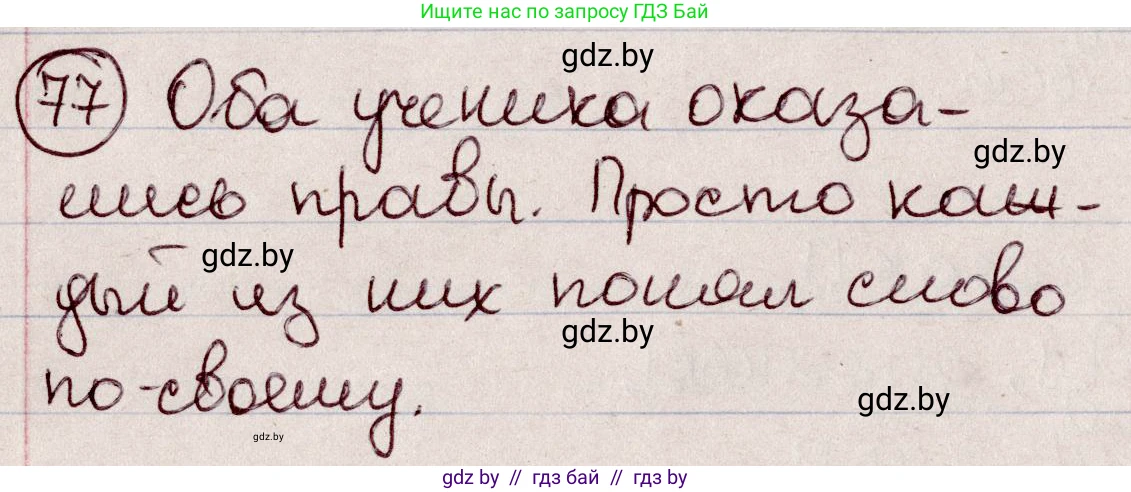 Ищите нас по запросу ГДЗ Бай
gdz.by
77 Оба ученика оказа-
gdz.by
лись правы. Просто каж-
gdz.by
дый из них понял слово
gdz.by
по-своему.
gdz.by
gdz.by
gdz by // гдз бай // гдз by